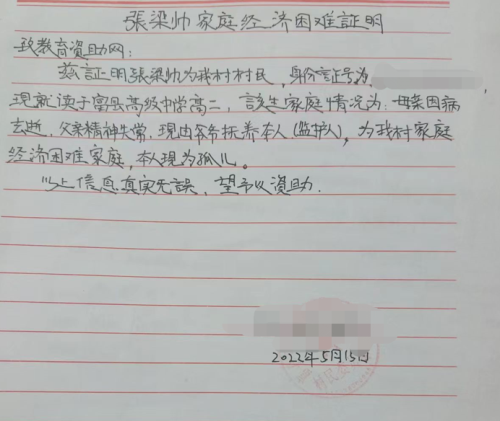 張梁帅家庭经济困难証明
致教育資助网:
兹証明張梁帅为我村村民,身份証号为,
現就读于富县高级中学高二,該生家庭情况为:母亲因病
去逝,父亲精神失常,現由爷爷抚养本人(监护人),为我村家庭
经济困难家庭,本人現为孤儿。
以上信息真実无誤,望予以資助.
2022年5月15日